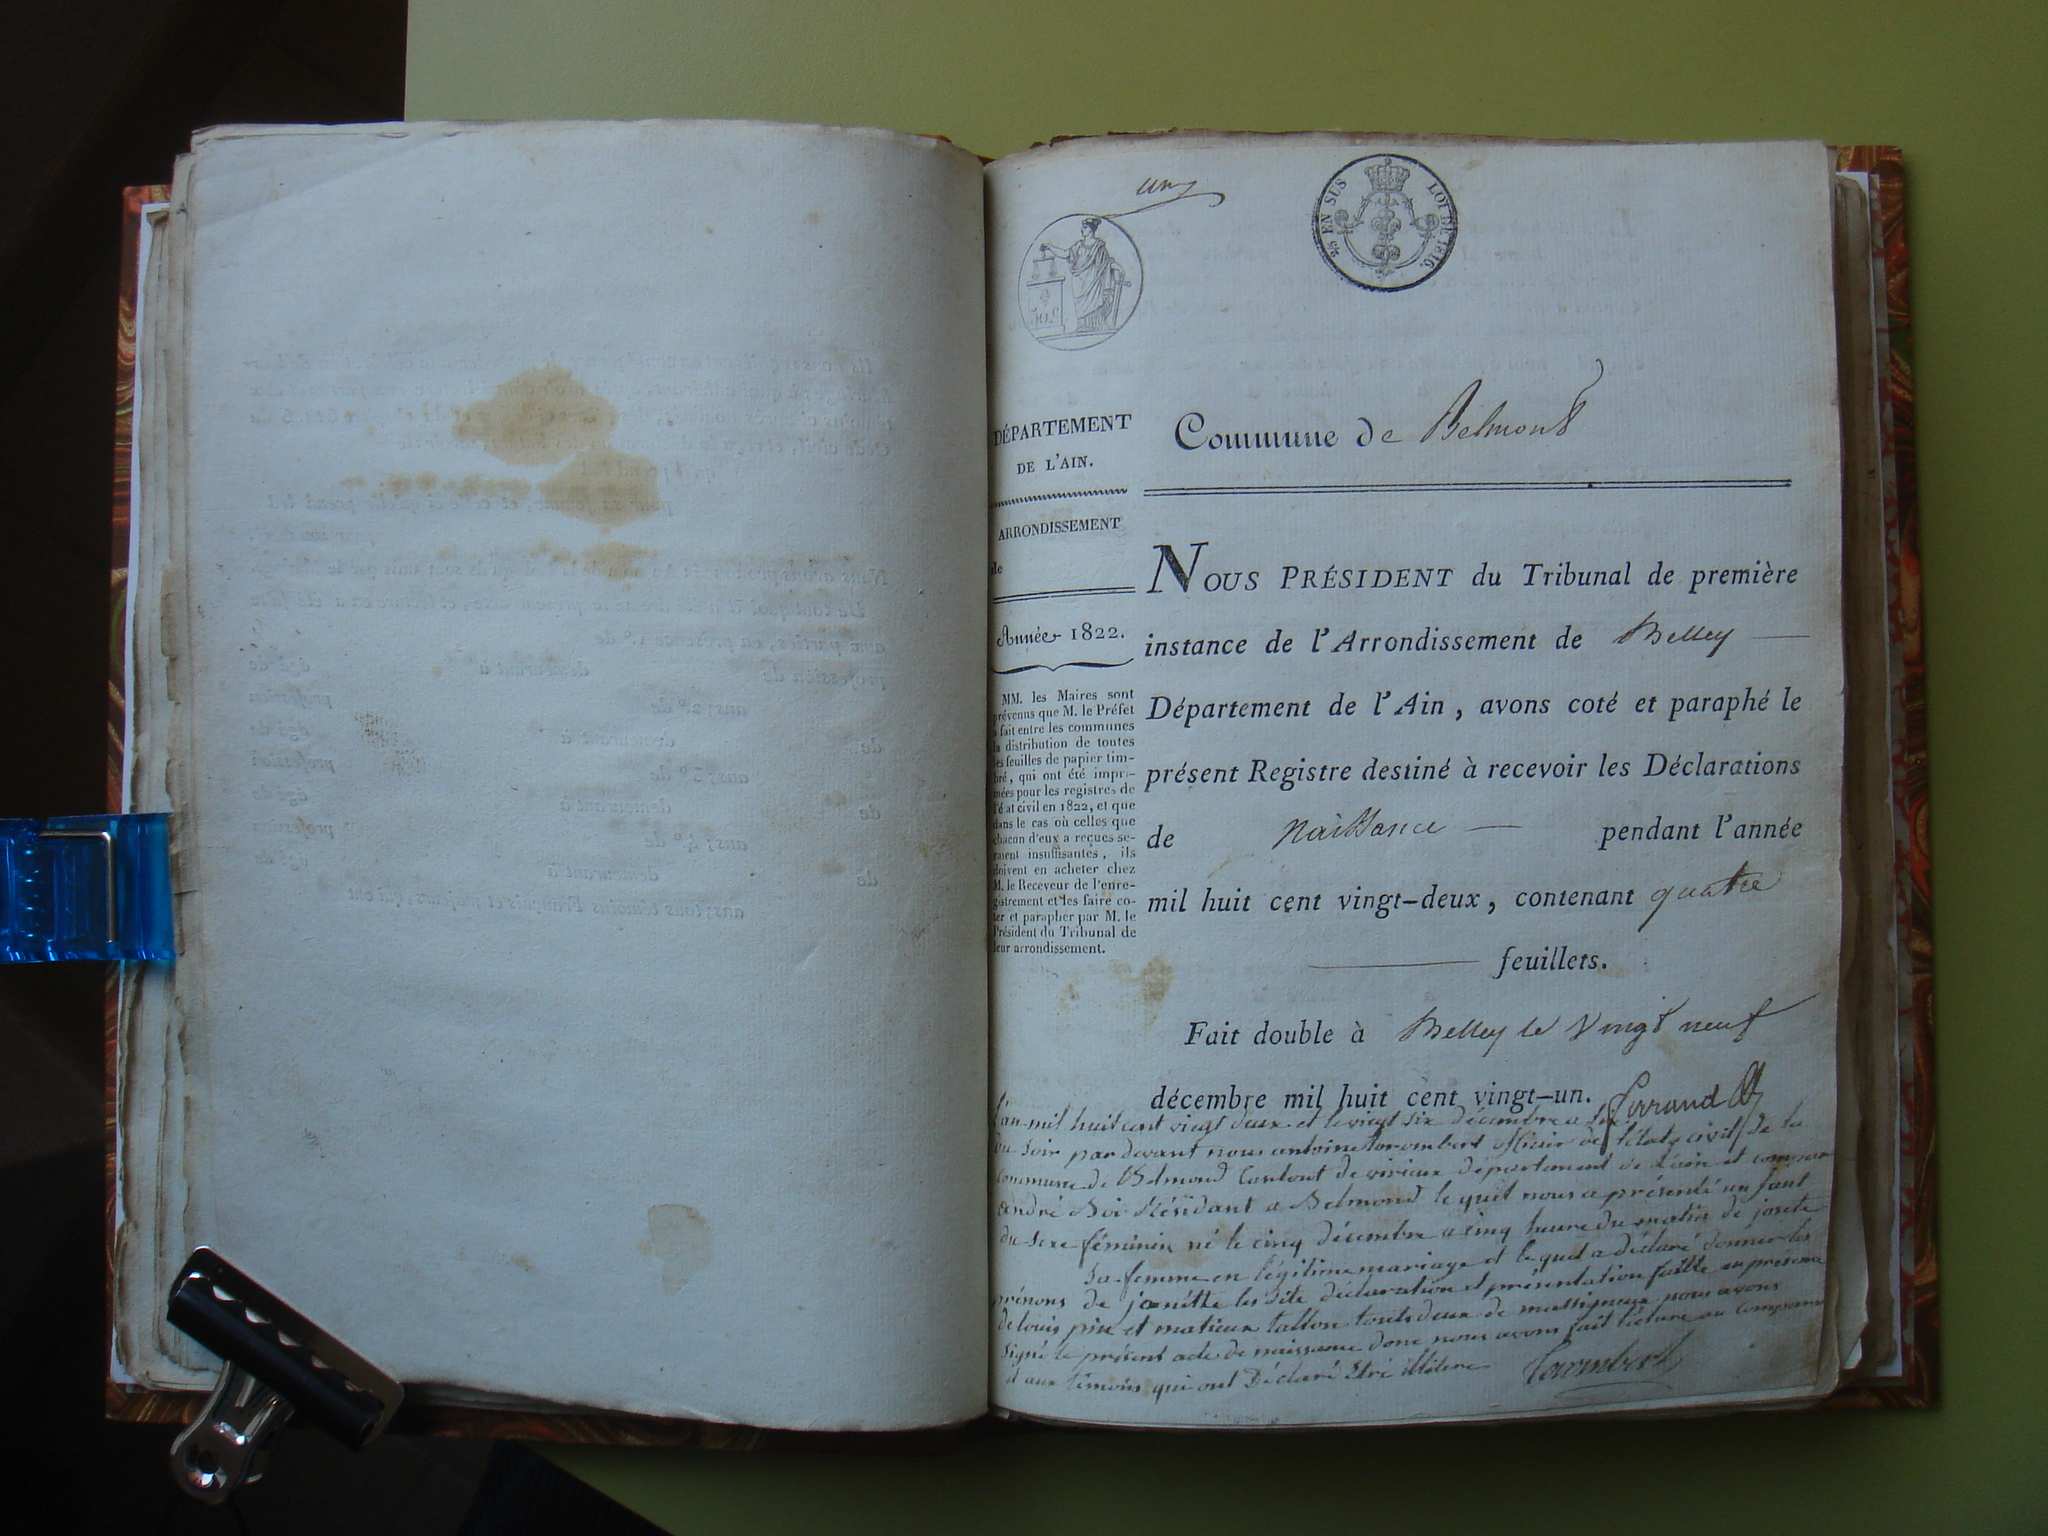 un
25 EN SUS
LOI DE 1816.
DÉPARTEMENT
DE L'AIN.
ARRONDISSEMENT
de
Année 1822.
MM. les Maires sont
prévenus que M. le Préfet
a fait entre les communes
la distribution de toutes
les feuilles de papier tim-
bré, qui ont été impri-
mées pour les registres de
l'état civil en 1822, et que
dans le cas où celles que
chacun d'eux a reçues se-
raient insuffisantes, ils
doivent en acheter chez
M. le Receveur de l'enre-
gistrement et les faire co-
ter et parapher par M. le
Président du Tribunal de
leur arrondissement.
Commune de Belmont
NOUS PRÉSIDENT du Tribunal de première
instance de l'Arrondissement de Belley
Département de l'Ain, avons coté et paraphé le
présent Registre destiné à recevoir les Déclarations
de naissance pendant l'année
mil huit cent vingt-deux, contenant quatre
feuillets.
Fait double à Belley le vingt neuf
décembre mil huit cent vingt-un. Ferrand
l'an mil huit cent vingt deux et le vingt six décembre a six
du soir par devant nous antoine torombert officier de l'état civil de la
commune de Belmond Cantont de virieux département de l'ain et comparu
andré Boi Résidant a Belmond le quel nous a présenté un fant
du sexe féminin né le cinq décembre a cinq heure du matin de josete
sa femme en légitime mariage et le quel a déclaré donner les
prénons de janétte les dite déclaration et présentation faitte en présence
de louis pin et matieux tallon touts deux de massigneux nous avons
signé le présent acte de naissance donc nous avons fait lécture au comparant
et aux témoins qui ont Déclaré Etre illitere Torombert